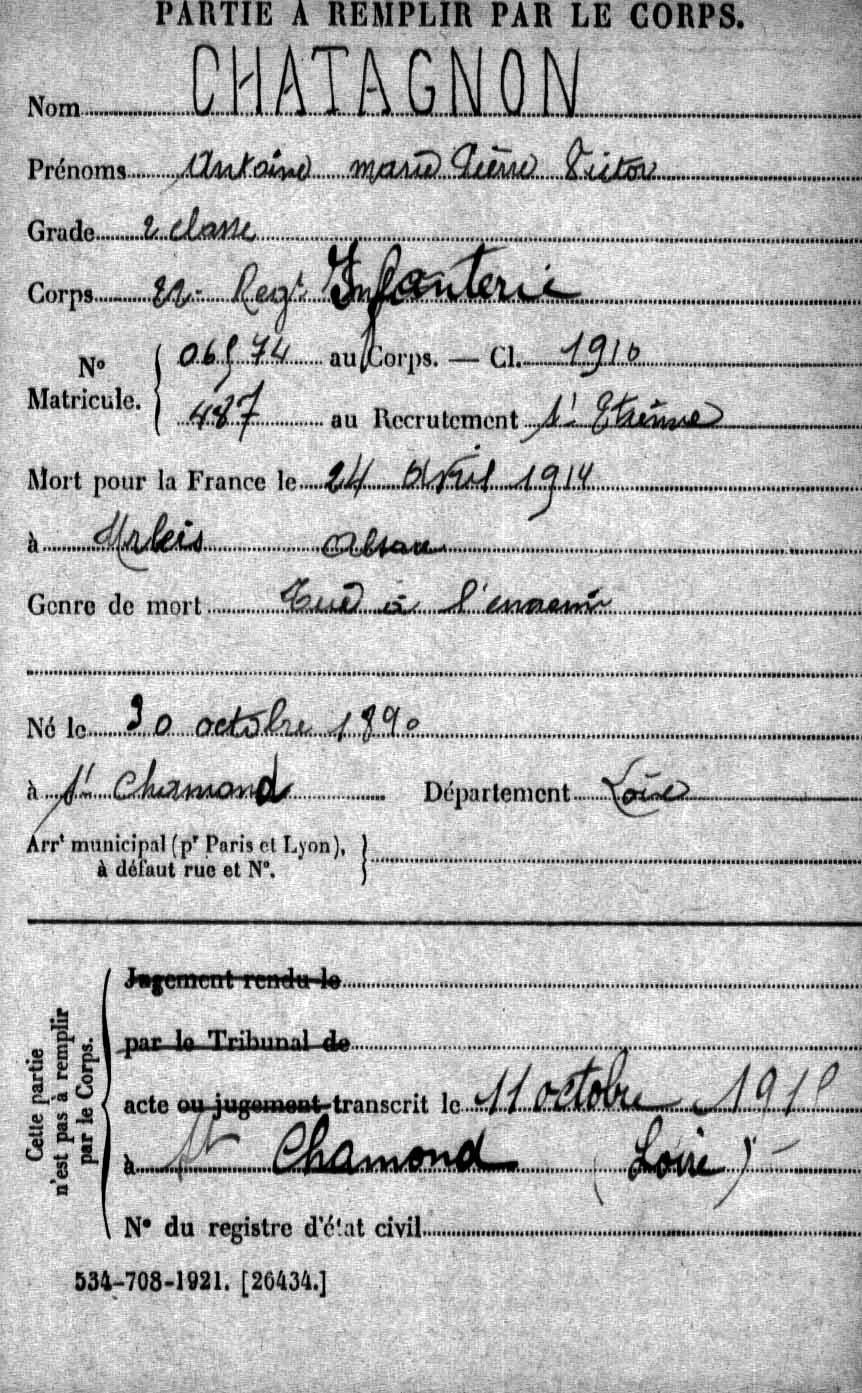 PARTIE À REMPLIR PAR LE CORPS.
Nom CHATAGNON
Prénoms Antoine marie Pierre Victor
Grade 2 classe
Corps 22e Regt Infanterie
No Matricule. 06574 au Corps. — Cl. 1910
487 au Recrutement St Etienne
Mort pour la France le 24 Avril 1914
à Urbeis Alsace
Genre de mort Tué à l'ennemi
Né le 30 octobre 1890
à St Chamond Département Loire
Arrt municipal (pr Paris et Lyon),
à défaut rue et No.
Cette partie
n'est pas à remplir
par le Corps.
Jugement rendu le
par le Tribunal de
acte ou jugement transcrit le 11 octobre 191
à St Chamond (Loire) -
No du registre d'état civil
534-708-1921. [26434.]